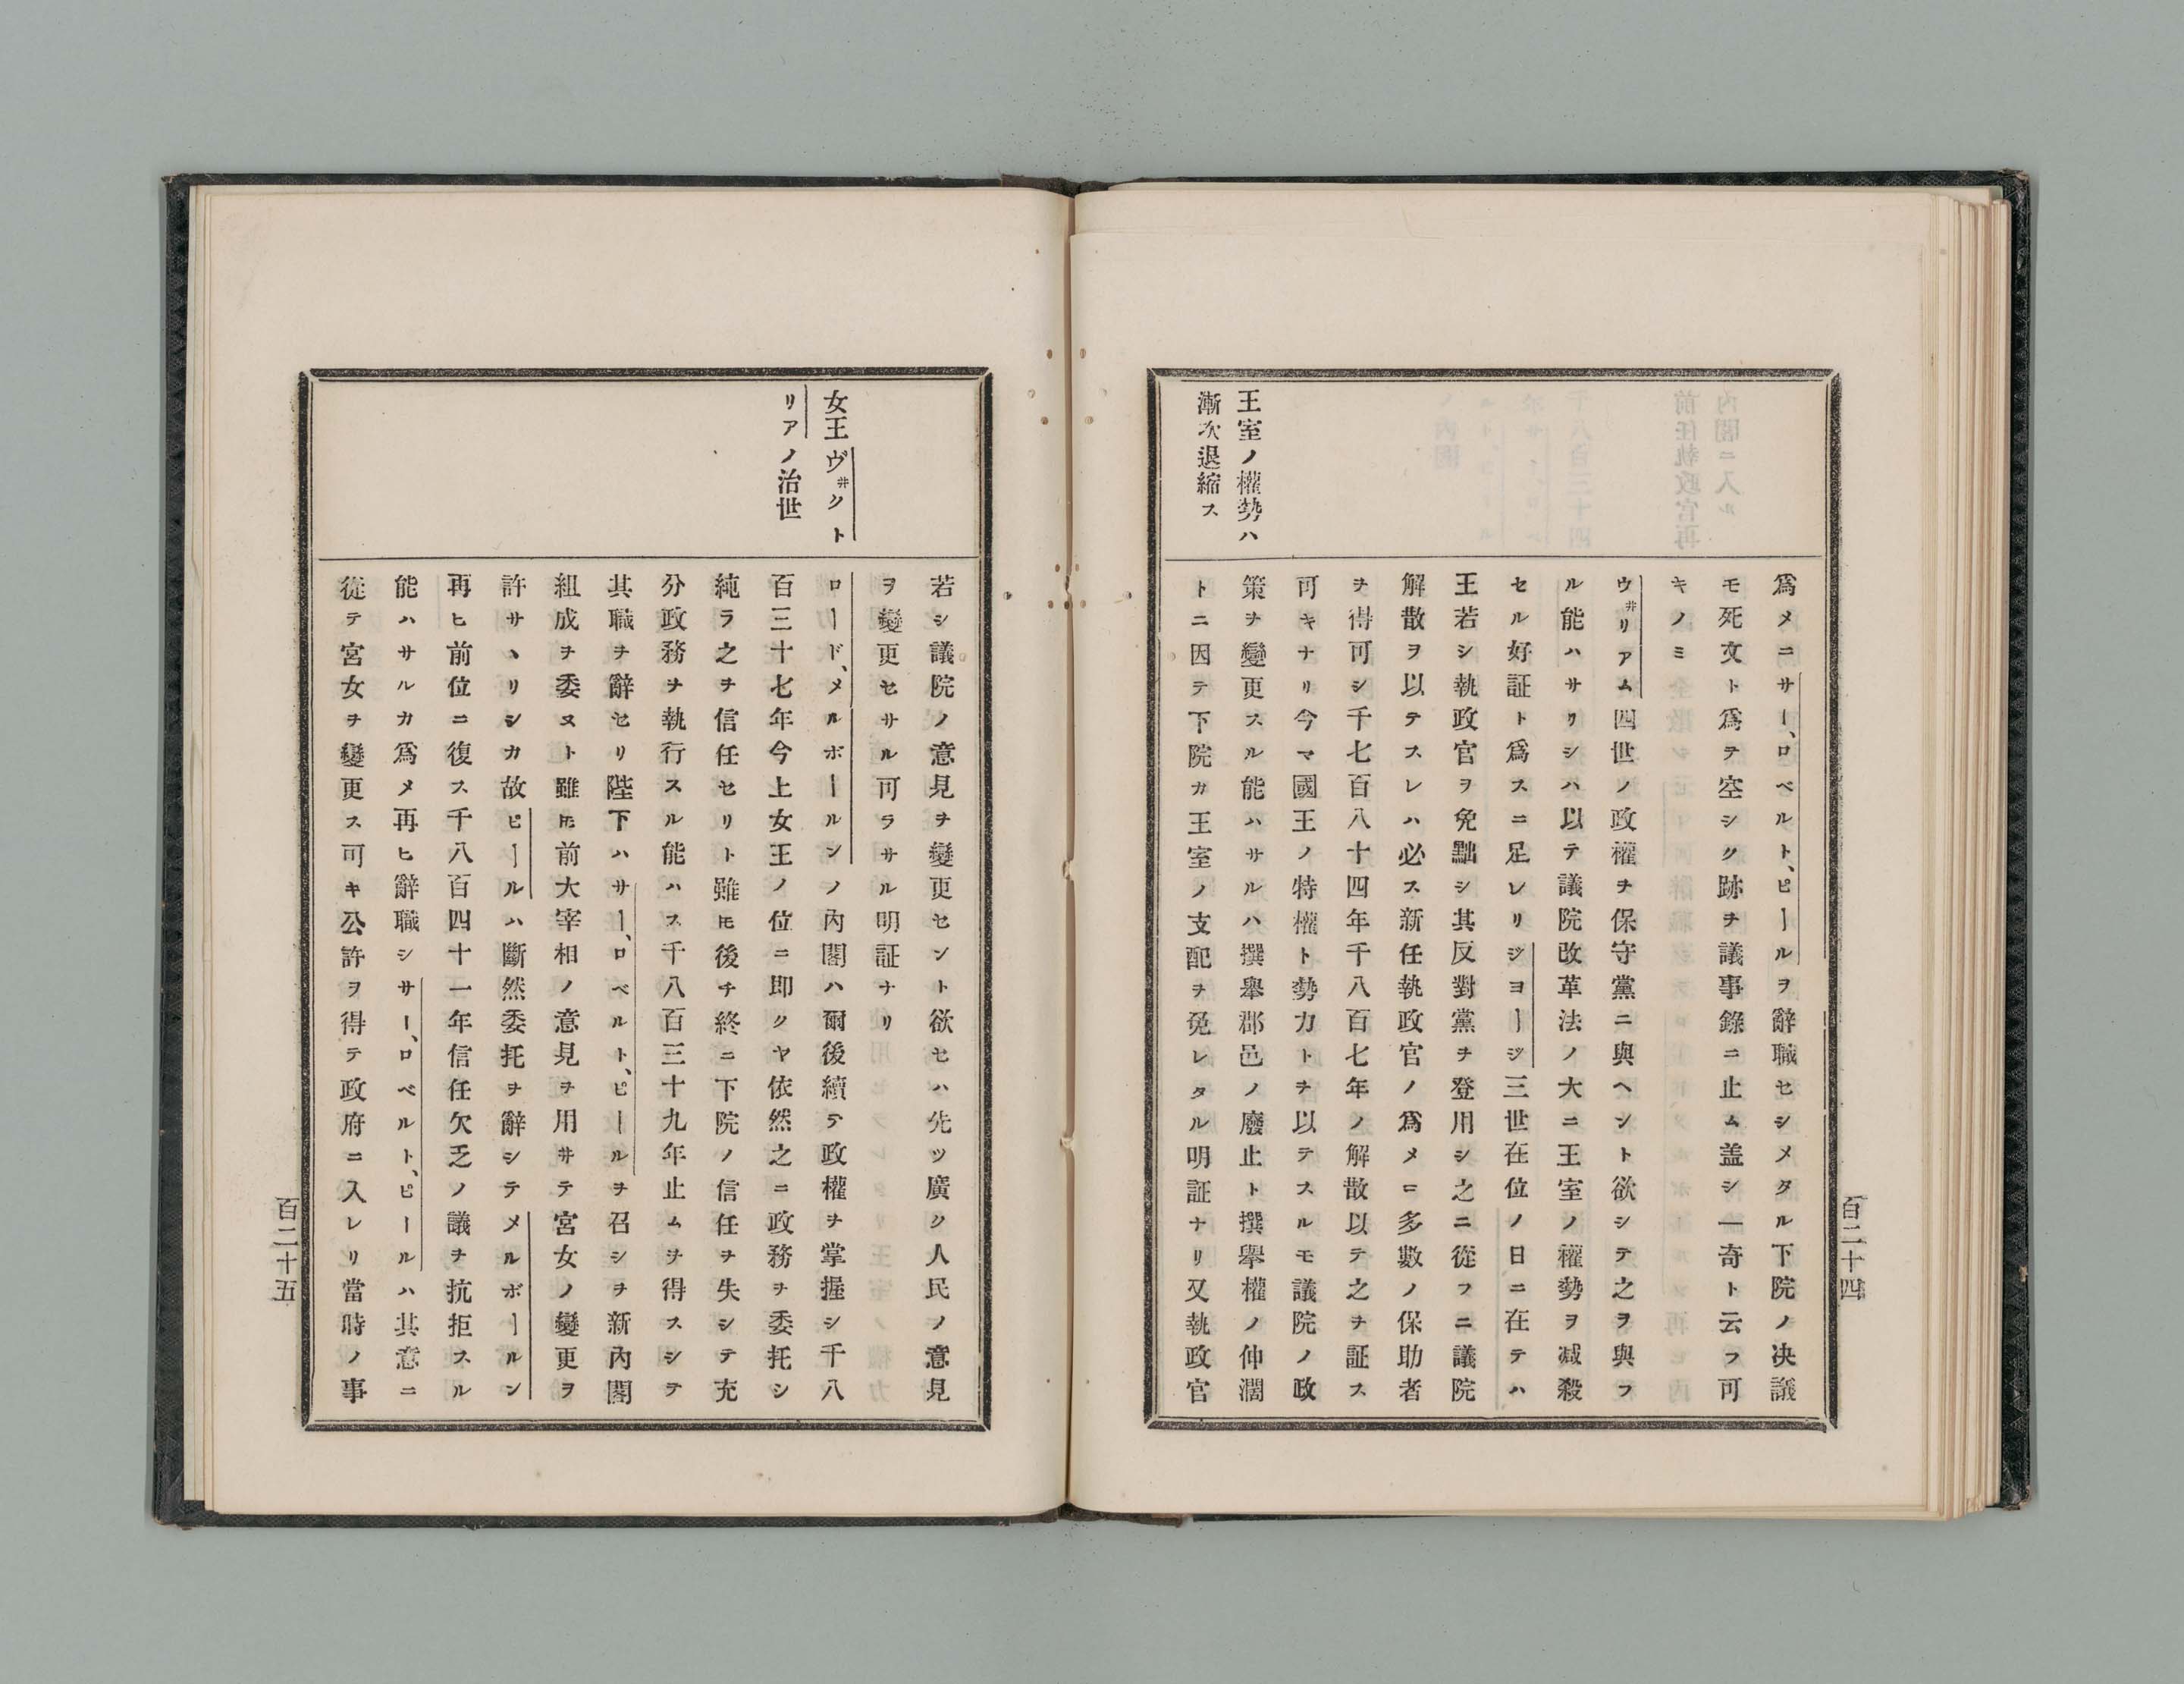 百二十四
王室ノ權勢ハ
漸次退縮ス
爲メニサー、ロベルト、ピールヲ辭職セシメタル下院ノ决議
モ死文ト爲テ空シク跡ヲ議事錄ニ止ム盖シ一奇ト云フ可
キノミ
ウ井リアム四世ノ政權ヲ保守黨ニ與ヘント欲シテ之ヲ與フ
ル能ハサリシハ以テ議院改革法ノ大ニ王室ノ權勢ヲ减殺
セル好証ト爲スニ足レリジヨージ三世在位ノ日ニ在テハ
王若シ執政官ヲ免黜シ其反對黨ヲ登用シ之ニ從フニ議院
解散ヲ以テスレハ必ス新任執政官ノ爲メニ多數ノ保助者
ヲ得可シ千七百八十四年千八百七年ノ解散以テ之ヲ証ス
可キナリ今マ國王ノ特權ト勢力トヲ以テスルモ議院ノ政
策ヲ變更スル能ハサルハ撰舉郡邑ノ廢止ト撰舉權ノ伸濶
トニ因テ下院カ王室ノ支配ヲ免レタル明証ナリ又執政官
女王ヴ井クト
リアノ治世
若シ議院ノ意見ヲ變更セント欲セハ先ツ廣ク人民ノ意見
ヲ變更セサル可ラサル明証ナリ
ロード、メルボールンノ內閣ハ爾後續テ政權ヲ掌握シ千八
百三十七年今上女王ノ位ニ即クヤ依然之ニ政務ヲ委托シ
純ラ之ヲ信任セリト雖𪜈後チ終ニ下院ノ信任ヲ失シテ充
分政務ヲ執行スル能ハス千八百三十九年止ムヲ得スシテ
其職ヲ辭セリ陛下ハサー、ロベルト、ピールヲ召シヲ新內閣
組成ヲ委ヌト雖𪜈前大宰相ノ意見ヲ用井テ宮女ノ變更ヲ
許サヽリシカ故ピールハ斷然委托ヲ辭シテメルボールン
再ヒ前位ニ復ス千八百四十一年信任欠乏ノ議ヲ抗拒スル
能ハサルカ爲メ再ヒ辭職シサー、ロベルト、ピールハ其意ニ
從テ宮女ヲ變更ス可キ公許ヲ得テ政府ニ入レリ當時ノ事
百二十五